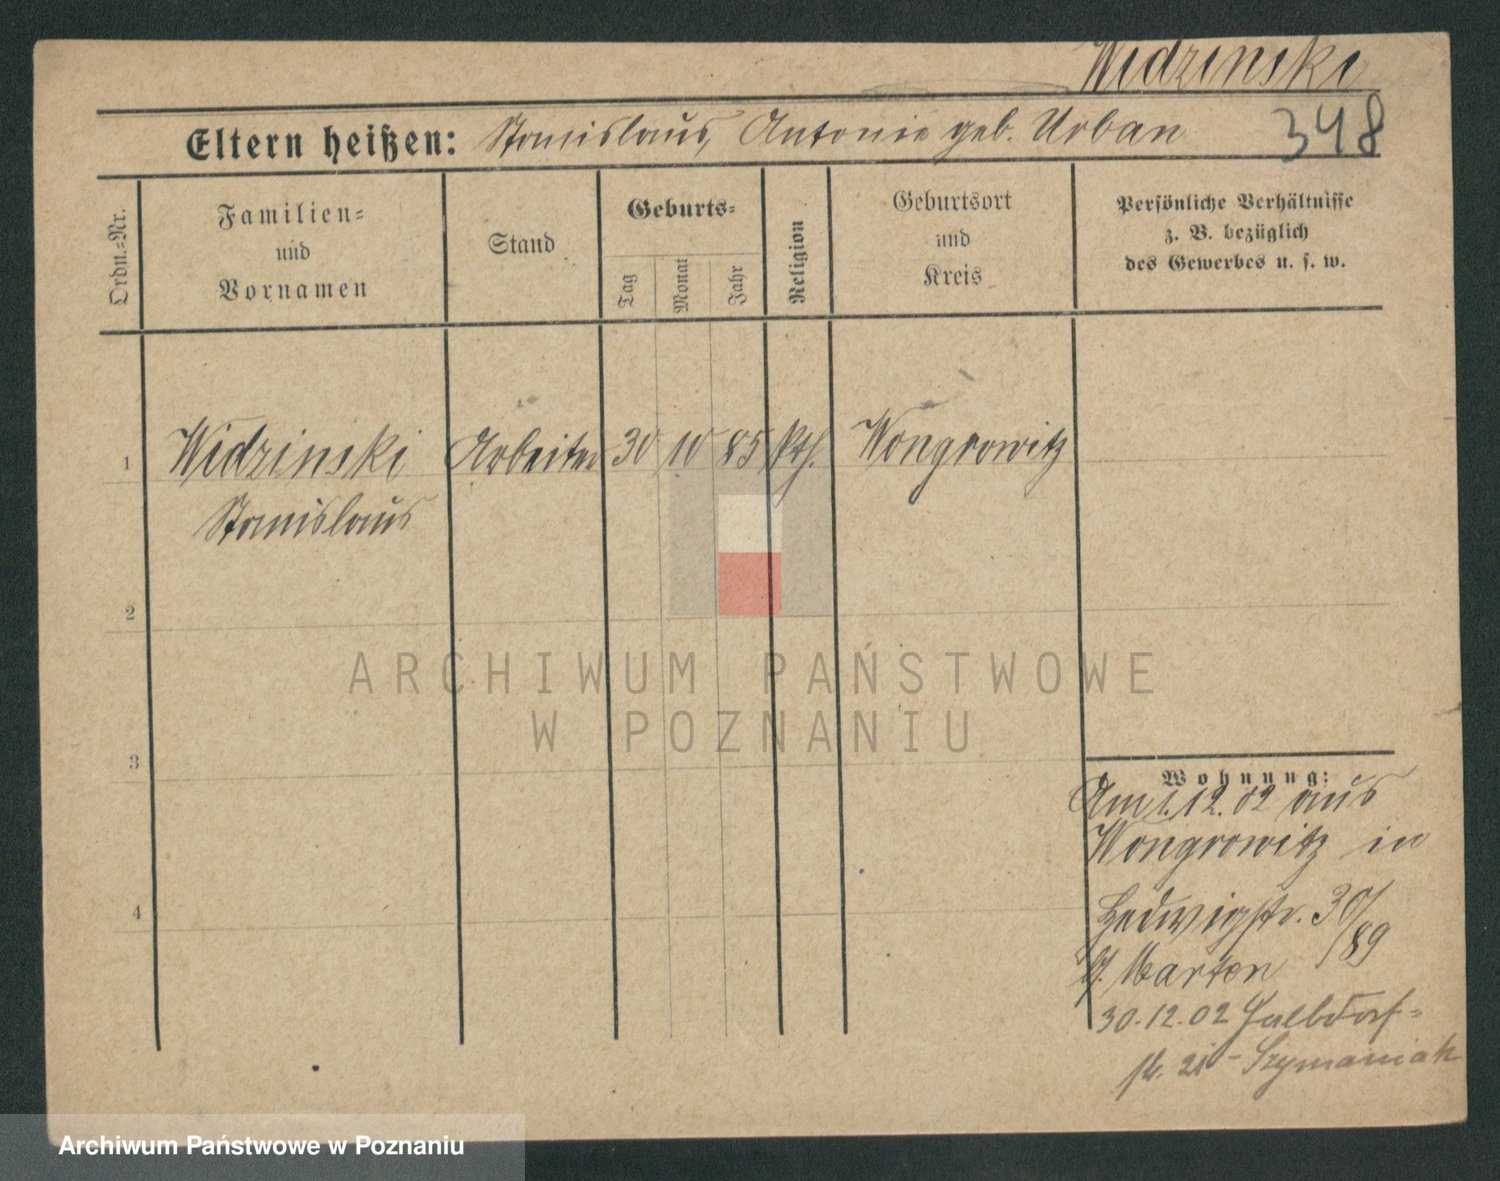 Widzinski
Eltern heißen: Stanislaus, Antonie geb. Urban 348
Ordn.=Nr.
Familien=
und
Vornamen
Stand
Geburts=
Tag
Monat
Jahr
Religion
Geburtsort
und
Kreis
Persönliche Verhältnisse
z. B. bezüglich
des Gewerbes u. s. w.
1 Widzinski Arbeiter 30 10 85 kth. Wongrowitz
Stanislaus
2
3
4
Wohnung:
Am 1.12.02 aus
Wongrowitz in
Hedwigstr. 30/89
b/. Marten
30.12.02 Halbdorf=
str. 21 - Szymaniak
ARCHIWUM PAŃSTWOWE
W POZNANIU
Archiwum Państwowe w Poznaniu